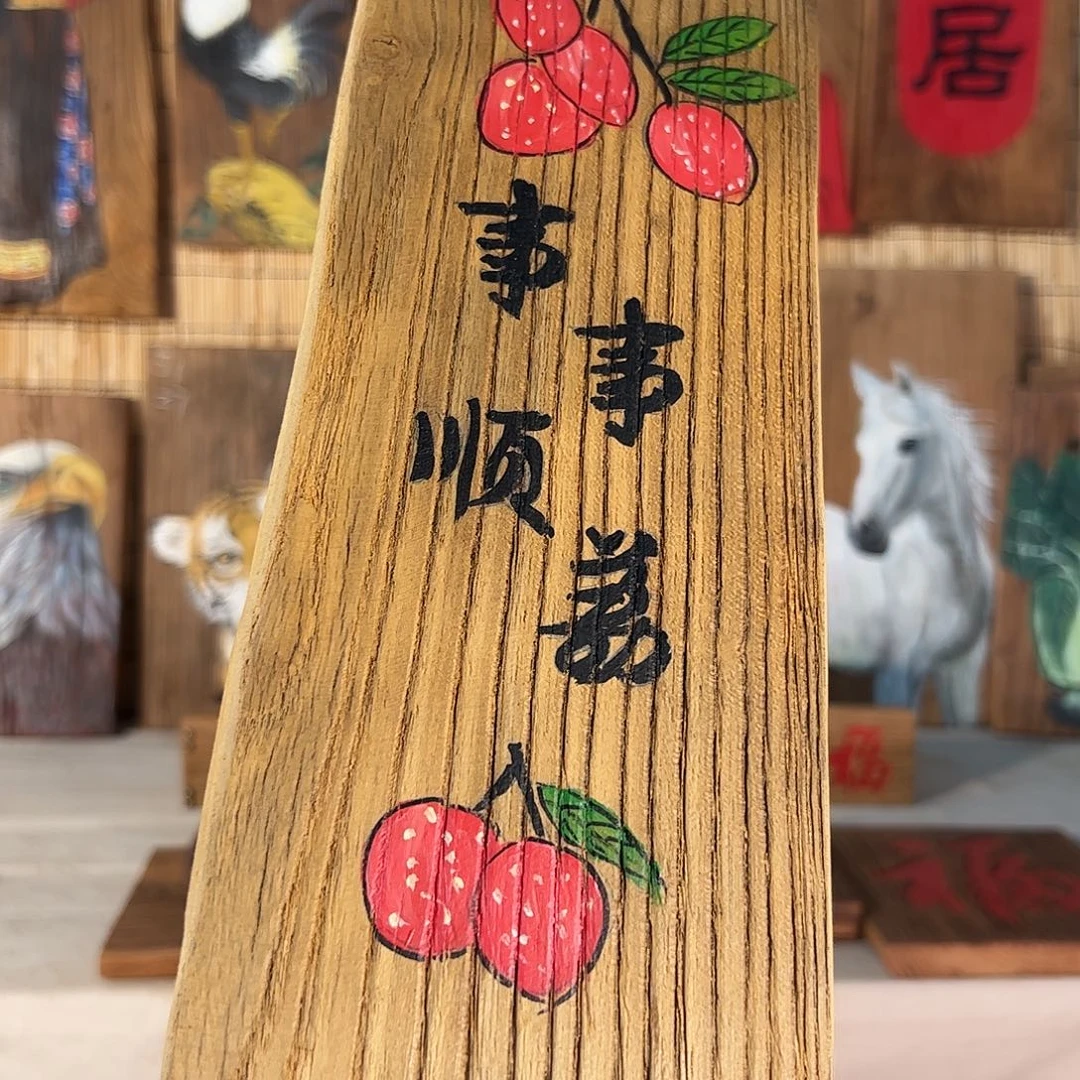 事事顺荔
居
福